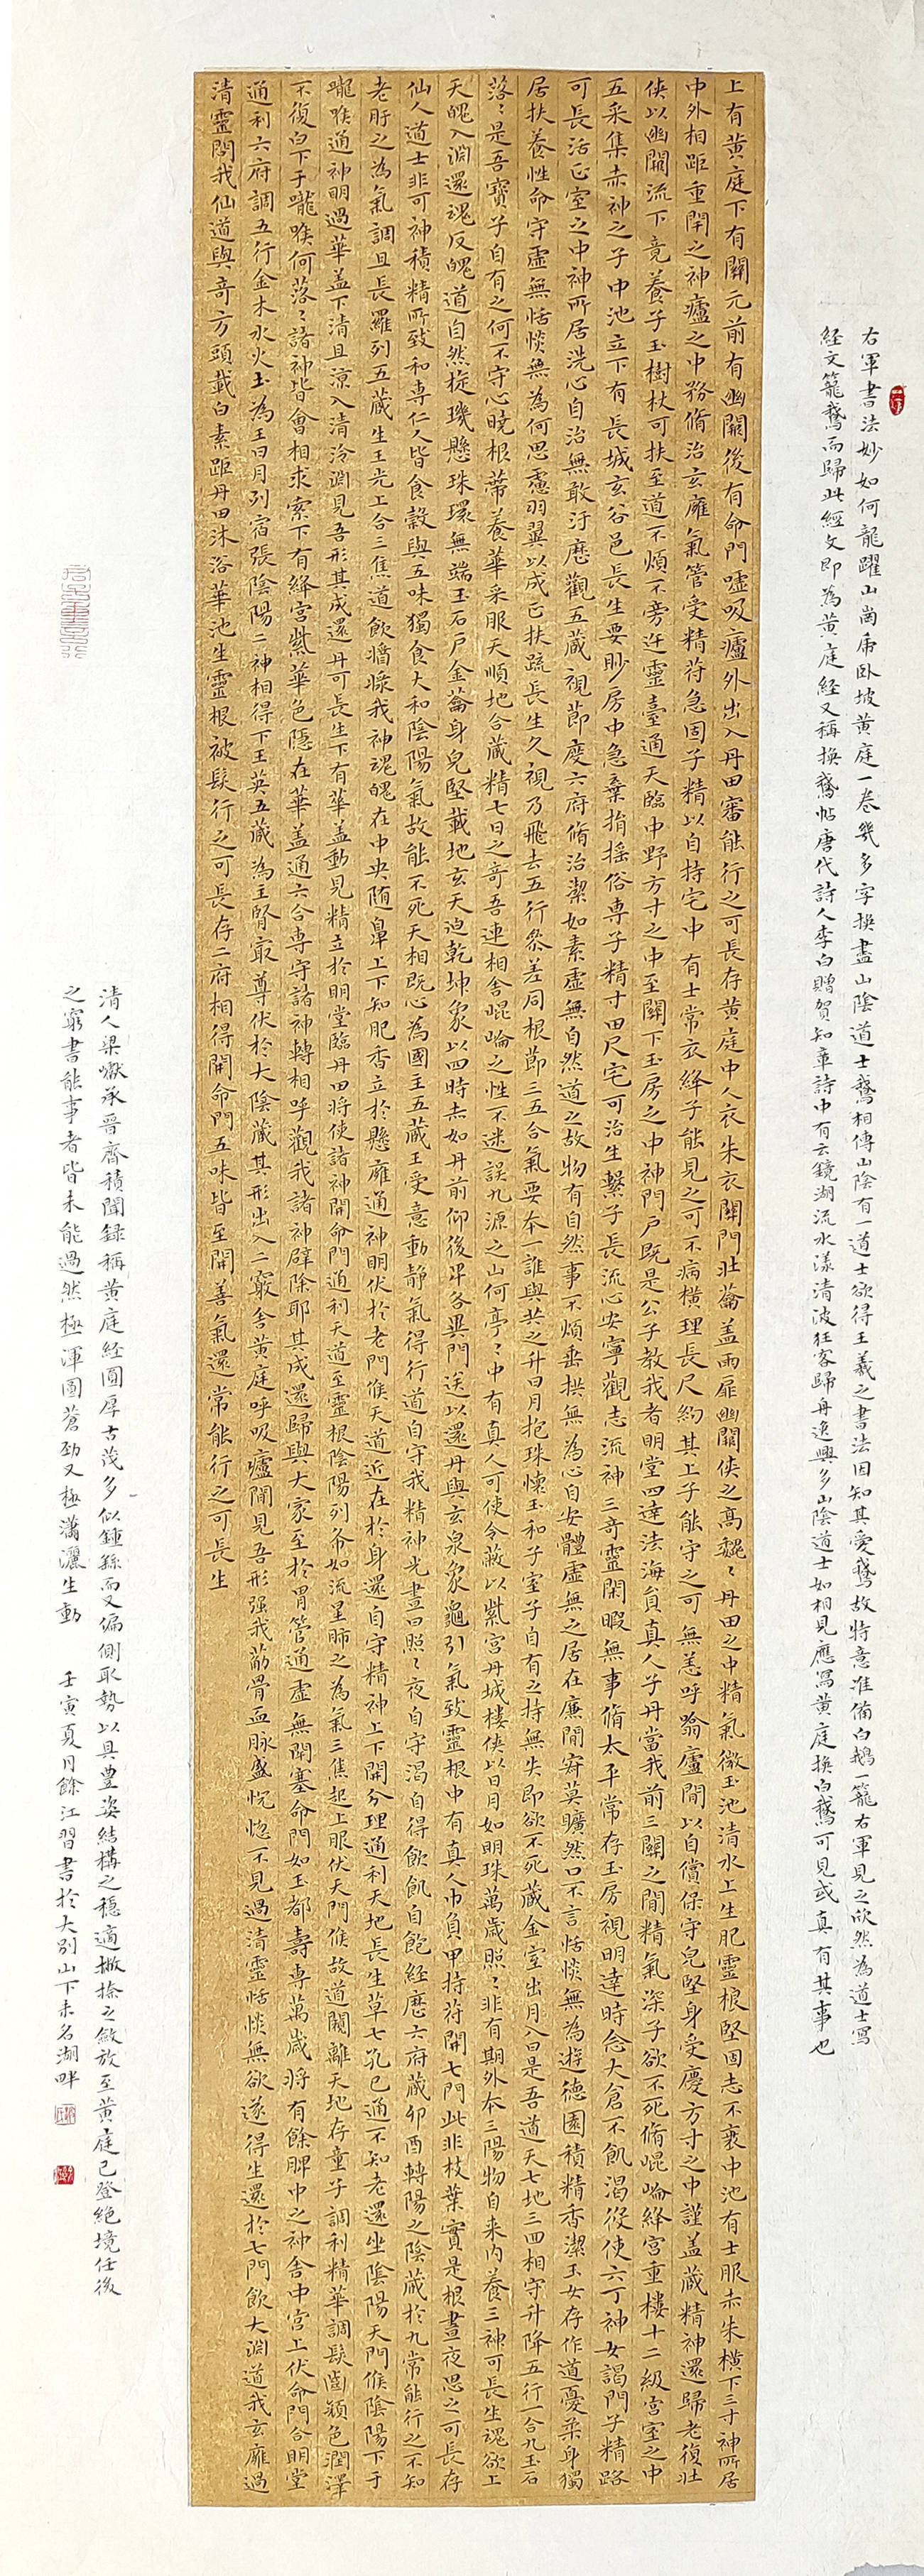 右軍書法妙如何龍躍山崗虎卧坡黄庭一卷幾多字換盡山陰道士鵝相傳山陰有一道士欲得王羲之書法因知其愛鵝故特意准備白鵝一籠右軍見之欣然為道士寫
経文籠鵝而歸此經文即為黄庭経又稱換鵝帖唐代詩人李白贈賀知章詩中有云鏡湖流水漾清波狂客歸舟逸興多山陰道士如相見應寫黄庭換白鵝可見或真有其事也
上有黄庭下有關元前有幽闕後有命門噓吸廬外出入丹田審能行之可長存黄庭中人衣朱衣關門壮蘥盖兩扉幽闕侠之高魏〻丹田之中精氣微玉池清水上生肥靈根堅固志不衰中池有士服赤朱横下三寸神所居
中外相距重閉之神廬之中務脩治玄廱氣管受精苻急固子精以自持宅中有士常衣絳子能見之可不病横理長尺約其上子能守之可無恙呼噏廬間以自償保守皃堅身受慶方寸之中謹盖蔵精神還歸老復壮
侠以幽闕流下竟養子玉樹杖可扶至道不煩不旁迕靈臺通天臨中野方寸之中至關下玉房之中神門戸既是公子教我者明堂四達法海員真人子丹當我前三關之間精氣深子欲不死脩崐崘絳宫重樓十二級宫室之中
五采集赤神之子中池立下有長城玄谷邑長生要眇房中急棄捐搖俗専子精寸田尺宅可治生繫子長流心安寧觀志流神三奇靈閑暇無事脩太平常存玉房視明達時念大倉不飢渴役使六丁神女謁門子精路
可長活正室之中神所居洗心自治無敢汙歴觀五蔵視節度六府脩治潔如素虚無自然道之故物有自然事不煩垂拱無為心自安體虚無之居在廉間㝛莫曠然口不言恬惔無為遊德園積精香潔玉女存作道憂柔身獨
居扶養性命守虚無恬惔無為何思慮羽翼以成正扶疏長生久視乃飛去五行叅差同根節三五合氣要本一誰與共之升日月抱珠懷玉和子室子自有之持無失即欲不死蔵金室出月入日是吾道天七地三回相守升降五行一合九玉石
落〻是吾寳子自有之何不守心曉根蔕養華采服天順地合蔵精七日之奇吾連相舎崐崘之性不迷誤九源之山何亭〻中有真人可使令蔽以紫宫丹城樓侠以日月如明珠萬歲照〻非有期外本三陽物自来内養三神可長生魂欲上
天魄入淵還魂反魄道自然㨀璣懸珠環無端玉石戸金蘥身皃堅載地玄天迫乾坤象以四時赤如丹前仰後卑各異門送以還丹與玄泉象龜引氣致靈根中有真人巾負甲持苻開七門此非枝葉實是根晝夜思之可長存
仙人道士非可神積精所致和専仁人皆食穀與五味獨食大和陰陽氣故能不死天相既心為國主五蔵王受意動静氣得行道自守我精神光晝日照〻夜自守渴自得飲飢自飽経歴六府蔵卯酉轉陽之陰蔵於九常能行之不知
老肝之為氣調且長羅列五蔵生王光上合三焦道飲醬漿我神魂魄在中央随鼻上下知肥香立於懸廱通神明伏於老門候天道近在於身還自守精神上下開分理通利天地長生草七孔已通不知老還坐陰陽天門候陰陽下于
嚨喉通神明過華盖下清且涼入清泠淵見吾形其成還丹可長生下有華盖動見精立於明堂臨丹田将使諸神開命門通利天道至靈根陰陽列布如流星肺之為氣三焦起上服伏天門候故道闚離天地存童子調利精華調髪齒顔色潤澤
不復白下于嚨喉何落〻諸神皆會相求索下有絳宫紫華色隠在華盖通六合専守諸神轉相呼觀我諸神辟除耶其成還歸與大家至於胃管通虚無閉塞命門如玉都壽専萬歲将有餘脾中之神舎中宫上伏命門合明堂
通利六府調五行金木水火土為王日月列宿張陰陽二神相得下玉英五蔵為主腎㝡尊伏於大陰蔵其形出入二竅舎黄庭呼吸廬間見吾形强我荕骨血脉盛怳惚不見過清靈恬惔無欲遂得生還於七門飲大淵道我玄廱過
清靈問我仙道與奇方頭載白素距丹田沐浴華池生靈根被髮行之可長存二府相得開命門五味皆至開善氣還常能行之可長生
清人梁巘承晋齋積聞録稱黄庭経圓厚古茂多似鍾繇而又偏側取勢以具豊姿結構之穏適撇捺之斂放至黄庭已登絶境任後
之窮書能事者皆未能過然極渾圓蒼劲又極瀟灑生動 壬寅夏月餘江習書於大别山下未名湖畔